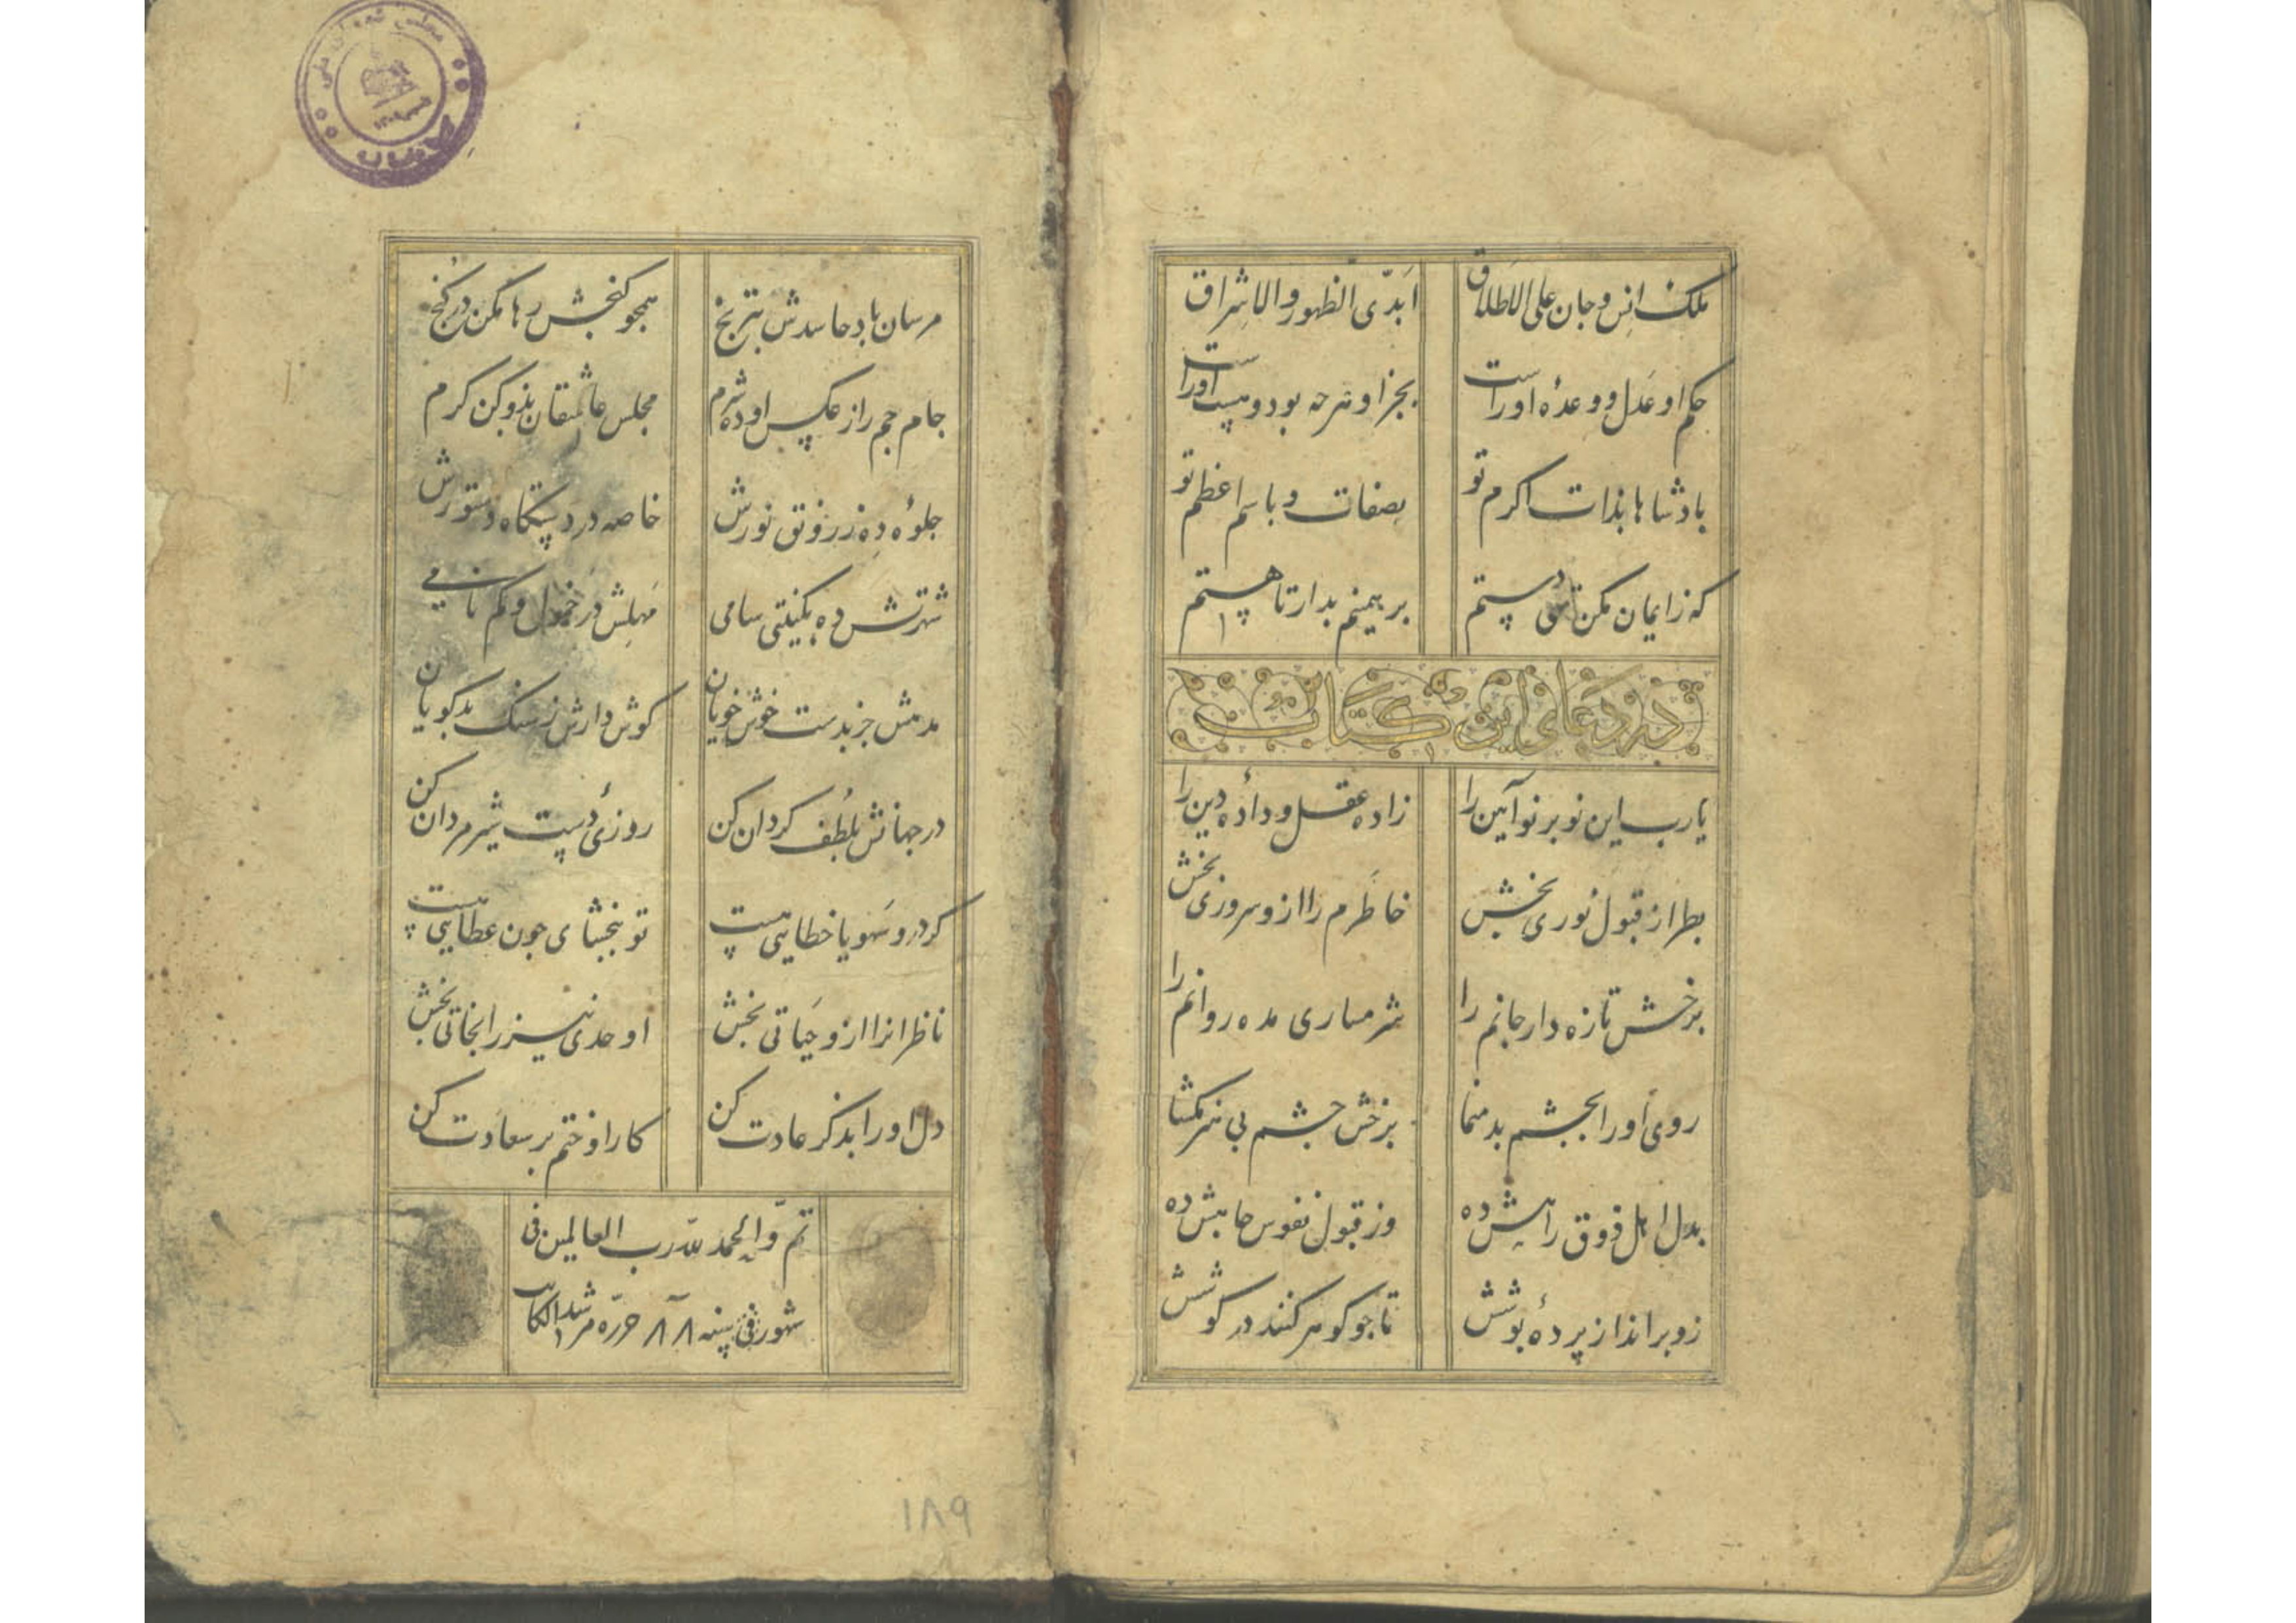 ملک انس و جان علی الاطلاق ابدی الظهور والاشراق
حکم او عدل و وعده او راست بجز او هرچه بود و هست او راست
بادشاها بذات اکرم تو بصفات و باسم اعظم تو
که ز ایمان مکن تهی دستم بر همینم بدار تا هستم
در دعای این کتاب
یارب این نوبر نو آیین را زاده عقل و داده دین را
بطراز قبول نوری بخش خاطرم را ازو سروری بخش
برخش تازه دار جانم را شرمساری مده روانم را
روی او را بچشم بد منما برخش چشم بی هنر مکشا
بدل اهل ذوق راهش ده وز قبول نفوس جاهش ده
زو برانداز پرده بوشش تا جو کوهر کنند در کوشش
مرسان باد حاسدش بترنج همجو کنجش رها مکن در کنج
جام جم را ز عکس او ده شرم مجلس عاشقان بذو کن کرم
جلوه ده ز رونق نورش خاصه در دستکاه دستورش
شهرتش ده بکنیتی سامی مهلش در خمول و کم نامی
مدهش جز بدست خوش خویان کوش دارش ز سنک بدکویان
در جهانش بلطف کردان کن روزی دست شیرمردان کن
کر درو سهو یا خطایی هست تو ببخشای جون عطایی هست
ناظرانرا ازو حیاتی بخش اوحدی نیز را نجاتی بخش
دل او را بذکر عادت کن کار او ختم بر سعادت کن
تم والحمد لله رب العالمین فی
شهور فی سنه ۸۸ حرره مرشد الکاتب
۱۸۹